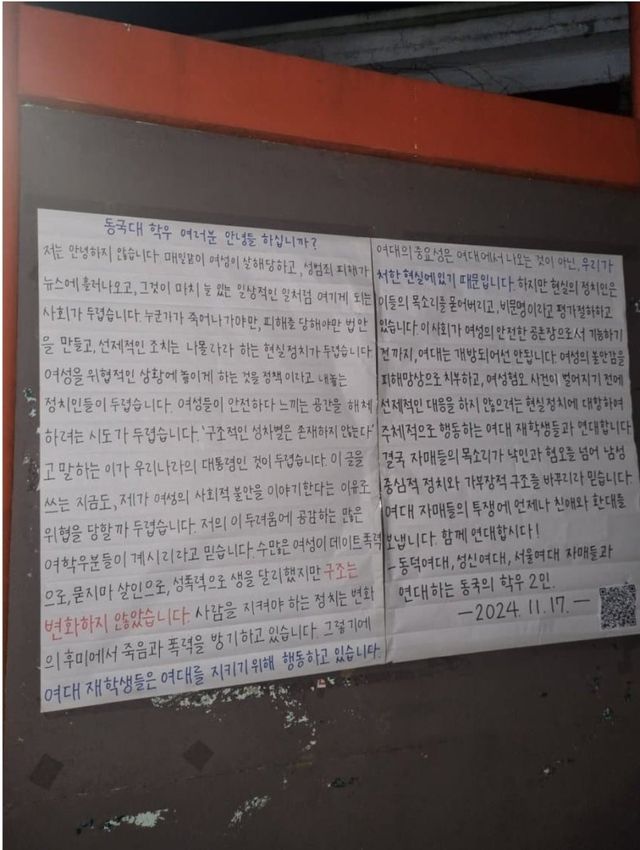 동국대 학우 여러분 안녕들 하십니까?
저는 안녕하지 않습니다. 매일같이 여성이 살해당하고, 성범죄 피해가
뉴스에 흘러나오고, 그것이 마치 늘 있는 일상적인 일처럼 여기게 되는
사회가 두렵습니다. 누군가가 죽어나가야만, 피해를 당해야만 법안
을 만들고, 선제적인 조치는 나몰라라 하는 현실정치가 두렵습니다.
여성을 위협적인 상황에 놓이게 하는 것을 정책이라고 내놓는
정치인들이 두렵습니다. 여성들이 안전하다 느끼는 공간을 해체
하려는 시도가 두렵습니다. '구조적인 성차별은 존재하지 않는다'
고 말하는 이가 우리나라의 대통령인 것이 두렵습니다. 이 글을
쓰는 지금도, 제가 여성의 사회적 불안을 이야기한다는 이유로
위협을 당할까 두렵습니다. 저의 이 두려움에 공감하는 많은
여학우분들이 계시리라고 믿습니다. 수많은 여성이 데이트폭력
으로, 묻지마 살인으로, 성폭력으로 생을 달리했지만 구조는
변화하지 않았습니다. 사람을 지켜야 하는 정치는 변화
의 후미에서 죽음과 폭력을 방기하고 있습니다. 그렇기에
여대 재학생들은 여대를 지키기 위해 행동하고 있습니다.
여대의 중요성은 여대에서 나오는 것이 아닌, 우리가
처한 현실에 있기 때문입니다. 하지만 현실의 정치인은
이들의 목소리를 묻어버리고, 비문명이라고 평가절하하고
있습니다. 이 사회가 여성의 안전한 공론장으로서 기능하기
전까지, 여대는 개방되어선 안됩니다. 여성의 불안감을
피해망상으로 치부하고, 여성혐오 사건이 벌어지기 전에
선제적인 대응을 하지 않으려는 현실정치에 대항하여
주체적으로 행동하는 여대 재학생들과 연대합니다.
결국 자매들의 목소리가 낙인과 혐오를 넘어 남성
중심적 정치와 가부장적 구조를 바꾸리라 믿습니다.
여대 자매들의 투쟁에 언제나 친애와 환대를
보냅니다. 함께 연대합시다!
-동덕여대, 성신여대, 서울여대 자매들과
연대하는 동국의 학우 2인.
-2024. 11. 17.-